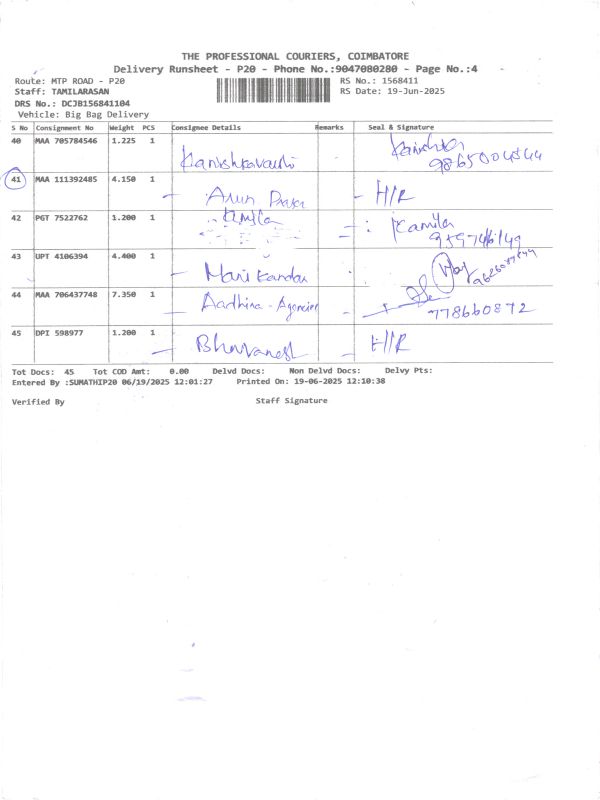 THE PROFESSIONAL COURIERS, COIMBATORE
Delivery Runsheet - P20 - Phone No.:9047080280 - Page No.:4
Route: MTP ROAD - P20 RS No.: 1568411
Staff: TAMILARASAN RS Date: 19-Jun-2025
DRS No.: DCJB156841104
Vehicle: Big Bag Delivery
S No Consignment No Weight PCS Consignee Details Remarks Seal & Signature
40 MAA 705784546 1.225 1
41 MAA 111392485 4.150 1 Arun H/R
42 PGT 7522762 1.200 1 Kamila
43 UPT 4106394 4.400 1 Manikandan
44 MAA 706437748 7.350 1 Aadhira - Agencies 778660872
45 DPI 598977 1.200 1 Bhuvanesh H/R
Tot Docs: 45 Tot COD Amt: 0.00 Delvd Docs: Non Delvd Docs: Delvy Pts:
Entered By :SUMATHIP20 06/19/2025 12:01:27 Printed On: 19-06-2025 12:10:38
Verified By Staff Signature